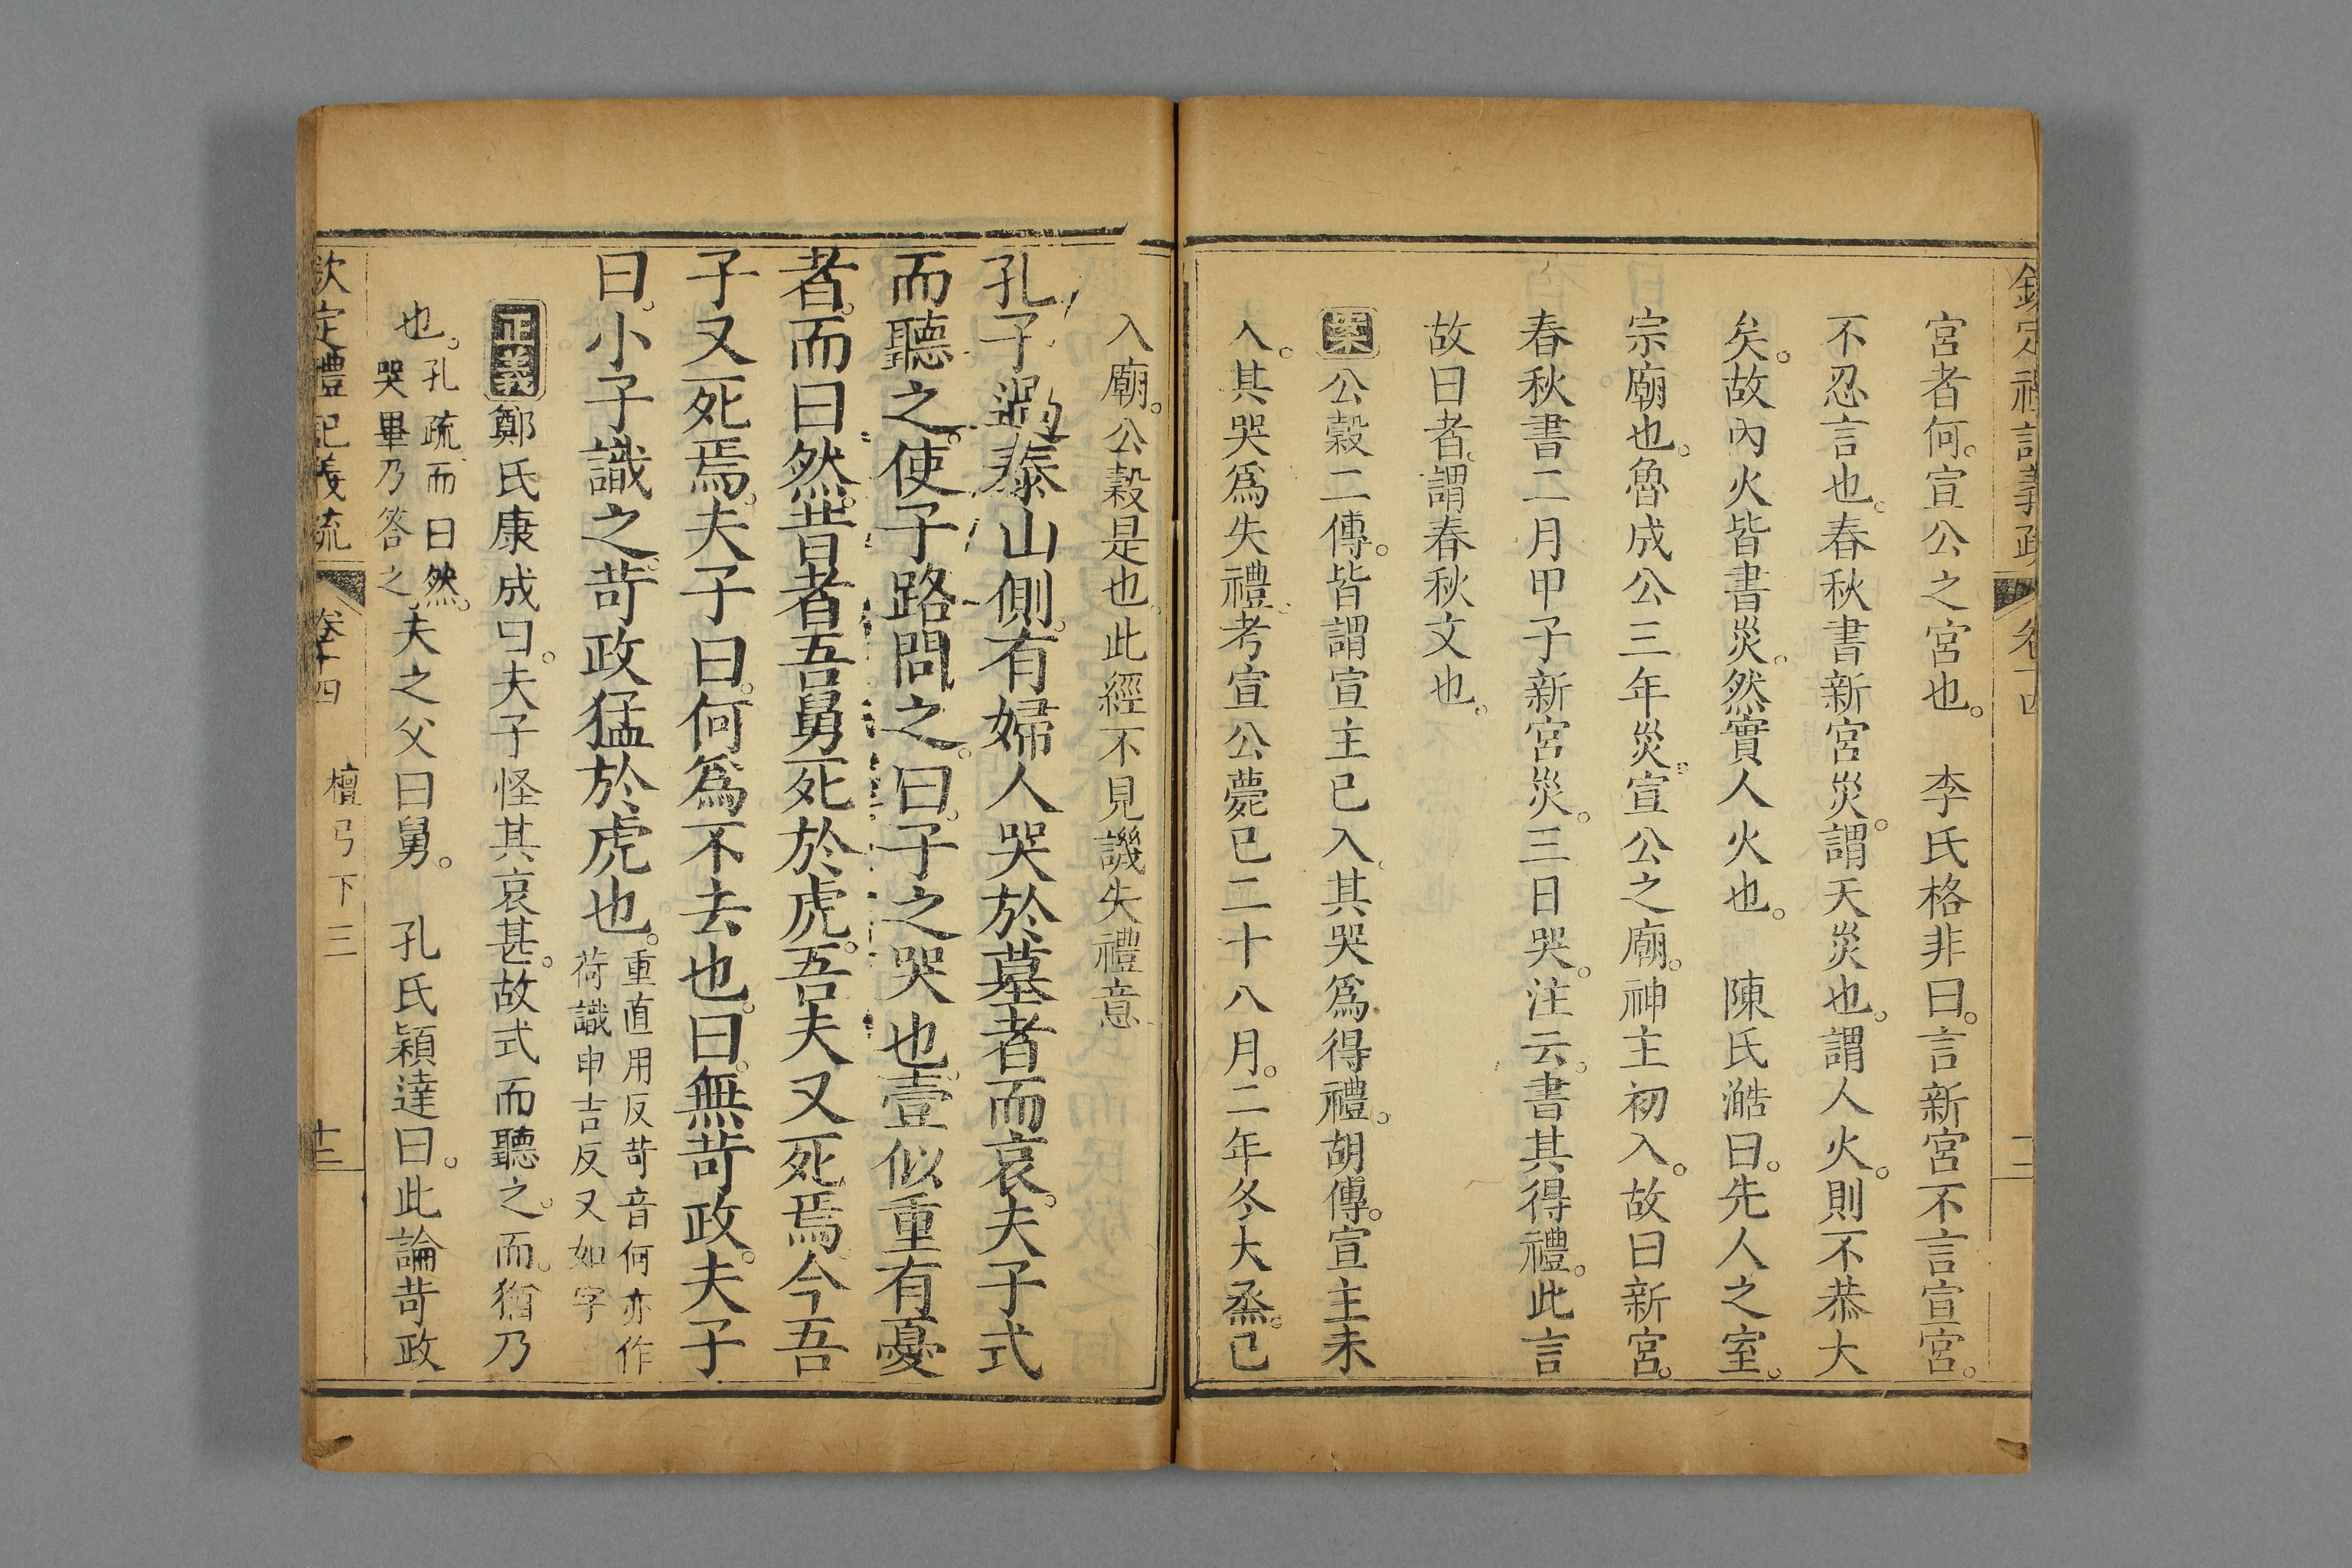 欽定禮記義疏 卷十四 十二
宮者何。宣公之宮也。 李氏格非曰。言新宮不言宣宮。
不忍言也。春秋書新宮災。謂天災也。謂人火。則不恭大
矣。故內火皆書災。然實人火也。 陳氏澔曰。先人之室。
宗廟也。魯成公三年災。宣公之廟。神主初入。故曰新宮。
春秋書二月甲子新宮災。三日哭。注云。書其得禮。此言
故曰者。謂春秋文也。
案公穀二傳。皆謂宣主已入。其哭爲得禮。胡傳。宣主未
入。其哭爲失禮。考宣公薨已二十八月。二年冬大烝。已
入廟。公穀是也。此經不見譏失禮意
孔子過泰山側。有婦人哭於墓者而哀。夫子式
而聽之。使子路問之。曰。子之哭也。壹似重有憂
者。而曰然。昔者吾舅死於虎。吾夫又死焉。今吾
子又死焉。夫子曰。何爲不去也。曰。無苛政。夫子
曰。小子識之。苛政猛於虎也。
重直用反苛音何亦作
荷識申吉反又如字
正義鄭氏康成曰。夫子怪其哀甚。故式而聽之。而。猶乃
也。
孔疏而曰然。
哭畢乃答之。
夫之父曰舅。 孔氏穎達曰。此論苛政
欽定禮記義疏 卷十四 檀弓下三 十三